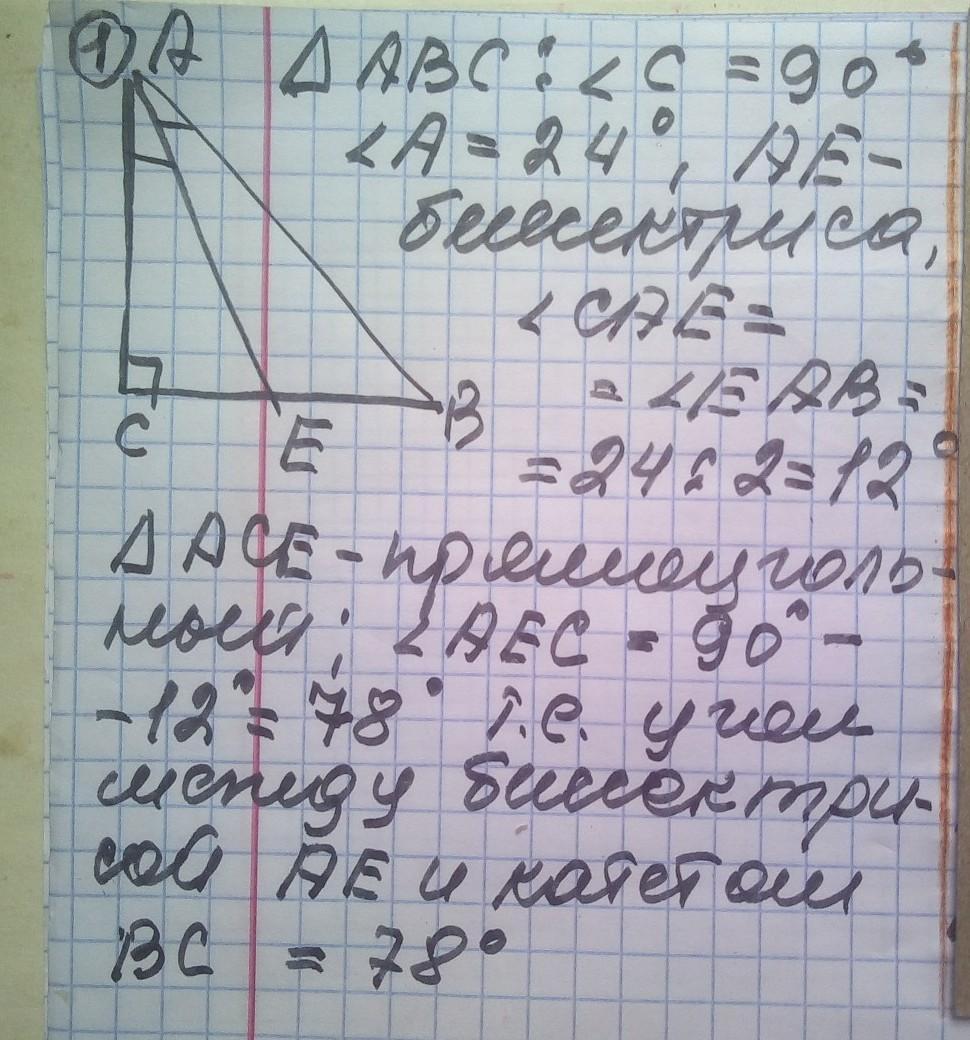 ① A △ ABC : ∠C = 90°
∠A = 24°, AE -
биссектриса,
∠CAE =
= ∠EAB =
= 24 : 2 = 12°
C E B
△ ACE - прямоуголь-
ный; ∠AEC = 90° -
- 12° = 78° т.е. угол
между биссектри-
сой AE и катетом
BC = 78°